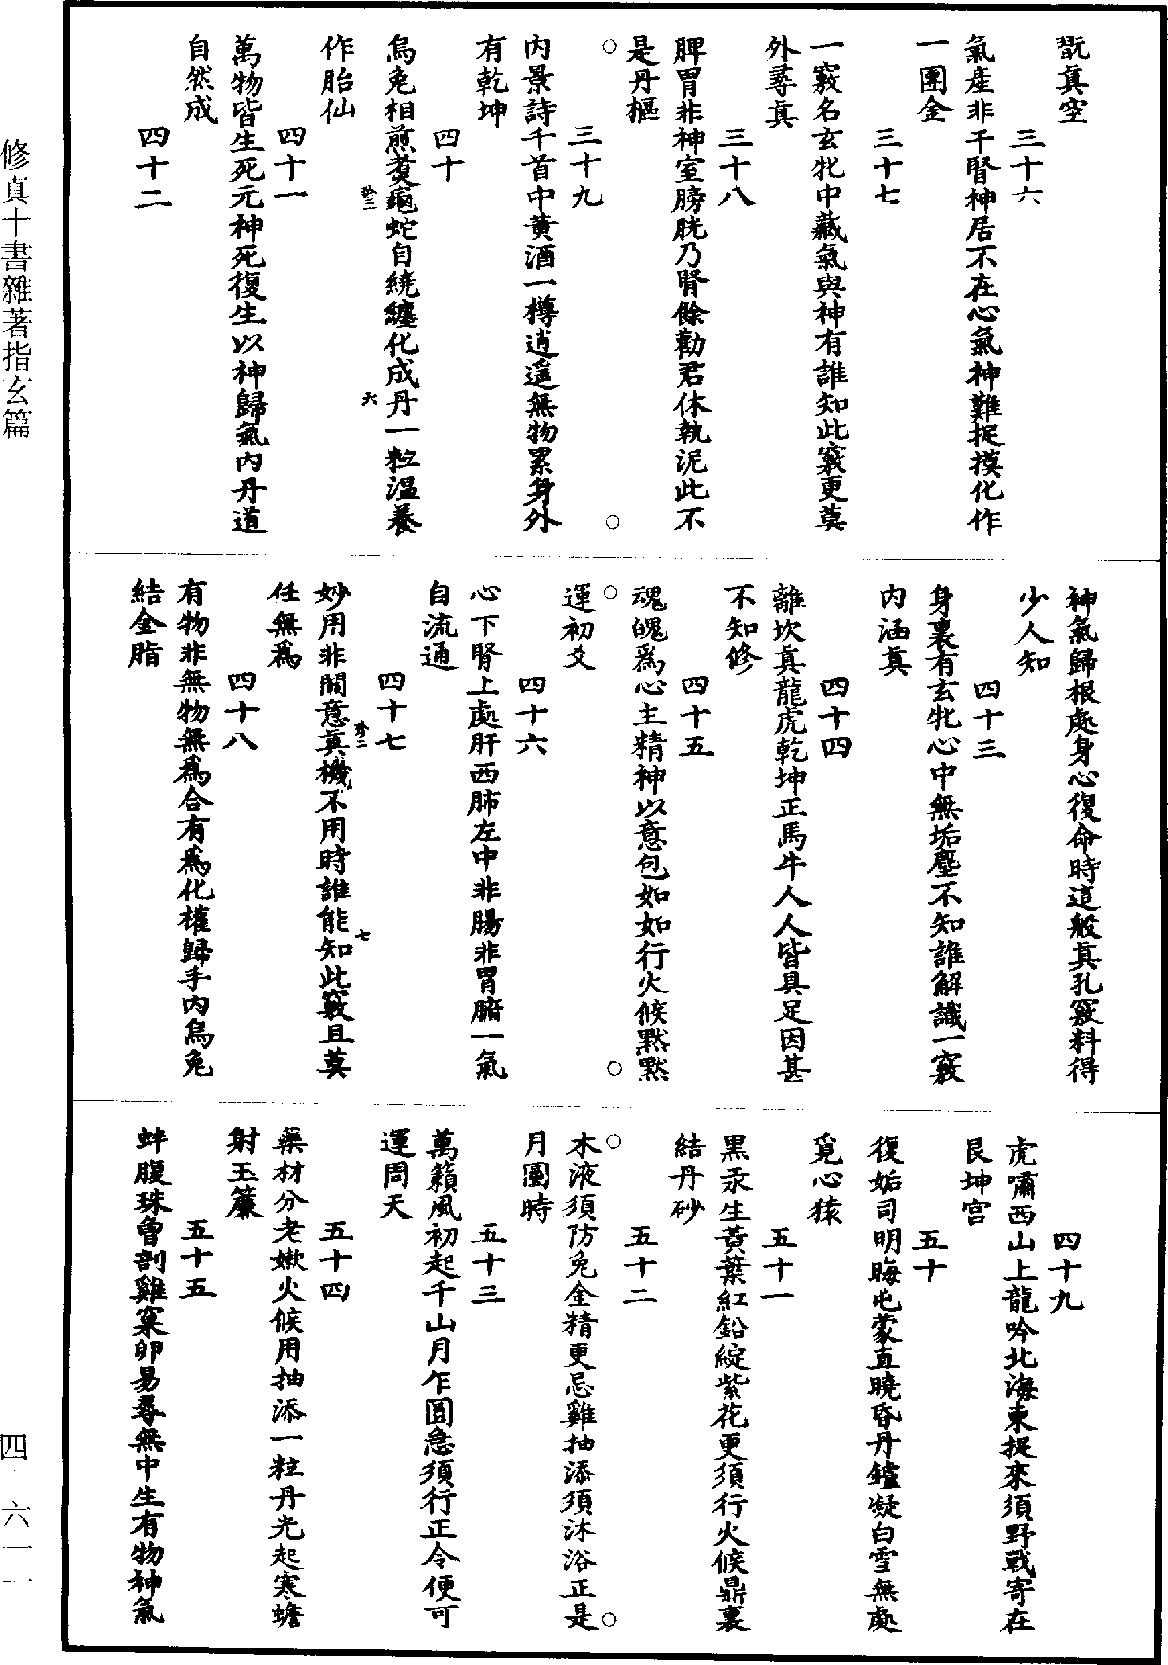 翫真空
三十六
氣產非干腎神居不在心氣神難捉摸化作
一團金
三十七
一竅名玄牝中藏氣與神有誰知此竅更莫
外尋真
三十八
脾胃非神室膀胱乃腎餘勸君休執泥此不
是丹樞
三十九
內景詩千首中黃酒一樽逍遥無物累身外
有乾坤
四十
烏兔相煎煑龜蛇自繞纏化成丹一粒温養
珍二 六
作胎仙
四十一
萬物皆生死元神死復生以神歸氣內丹道
自然成
四十二
神氣歸根處身心復命時這般真孔竅料得
少人知
四十三
身裏有玄牝心中無垢塵不知誰解識一竅
內涵真
四十四
離坎真龍虎乾坤正馬牛人人皆具足因甚
不知修
四十五
魂魄爲心主精神以意包如如行火候黙黙
運初爻
四十六
心下腎上處肝西肺左中非腸非胃腑一氣
自流通
四十七
妙用非關意真機不用時誰能知此竅且莫
珍二 七
任無爲
四十八
有物非無物無爲合有爲化權歸手內烏兔
結金脂
四十九
虎嘯西山上龍吟北海東捉來須野戰寄在
艮坤宫
五十
復姤司明晦屯蒙直曉昏丹鑪凝白雪無處
覓心猿
五十一
黑汞生黃葉紅鉛綻紫花更須行火候鼎裏
結丹砂
五十二
木液須防兔金精更忌雞抽添須沐浴正是
月圓時
五十三
萬籟風初起千山月乍圓急須行正令便可
運周天
五十四
藥材分老嫩火候用抽添一粒丹光起寒蟾
射玉簾
五十五
蚌腹珠曾剖雞窠卵易尋無中生有物神氣
修真十書雜著指玄篇
四·六一一